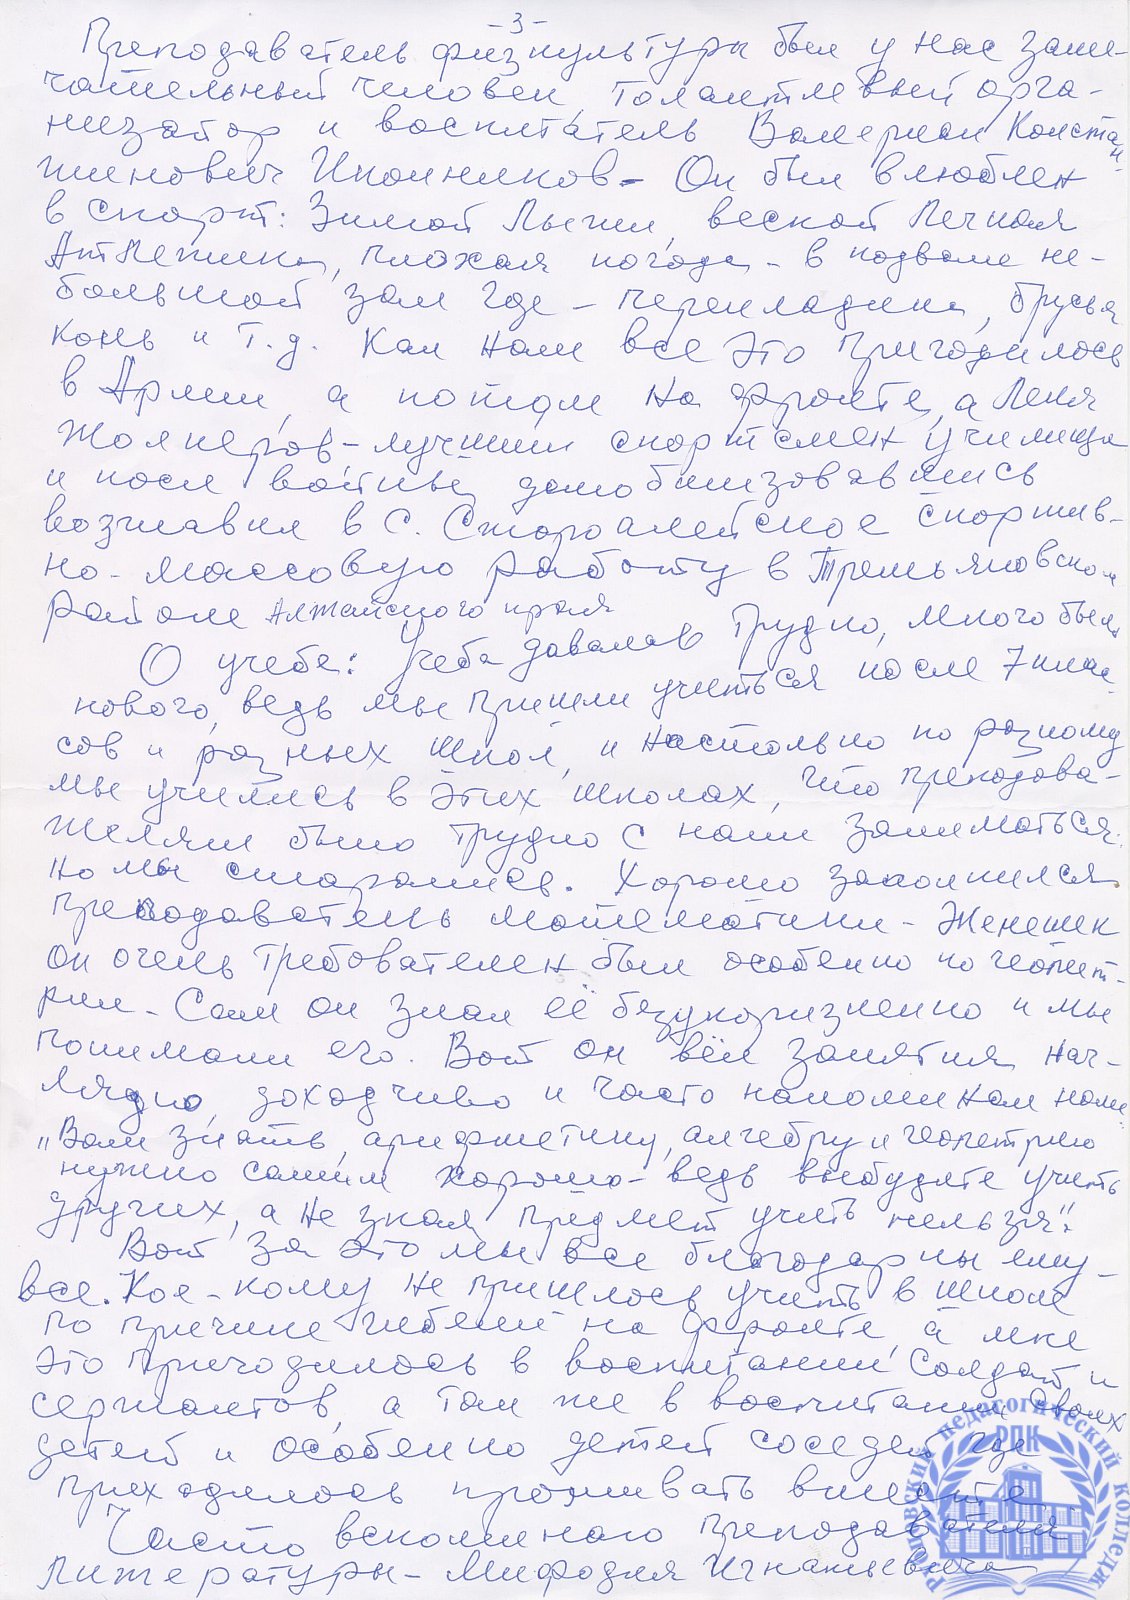 -3-
Преподаватель физкультуры был у нас заме-
чательный человек, талантливый орга-
низатор и воспитатель Валериан Констан-
тинович Иконников - Он был влюблен
в спорт: Зимой Лыжи, весной Легкая
Атлетика, плохая погода - в подвале не-
большой зал где - перекладина, брусья
конь и т.д. Как нам все это пригодилось
в Армии, а потом на фронте, а Леня
- лучший спортсмен училища
и после войны, демобилизовавшись
возглавил в с. Староалейское спортив-
но-массовую работу в Третьяковском
районе Алтайского края
О учебе: Учеба давалась трудно, много было
нового, ведь мы пришли учиться после 7 клас-
сов и разных школ, и настолько по разному
мы учились в этих школах, что преподова-
телям было трудно с нами заниматься.
Но мы старались. Хорошо запомнился
преподаватель математики - Женешек
он очень требователен был особенно по геомет-
рии - Сам он знал её безукоризненно и мы
понимали его. Вот он вёл занятия наг-
лядно, доходчиво и часто напоминал нам
„Вам знать арифметику, алгебру и геометрию
нужно самим хорошо - ведь вы будете учить
других, а не зная предмет учить нельзя".
Вот за это мы все благодарны ему -
все. Кое-кому не пришлось учить в школе
по причине гибели на фронте, а мне
это пригодилось в воспитании солдат и
сержантов, а так же в воспитании своих
детей и особенно детей соседей где
приходилось проживать вместе.
Часто вспоминаю преподавателя
литературы - Мифодия Игнатьевича
Рубцовский педагогический колледж
РПК